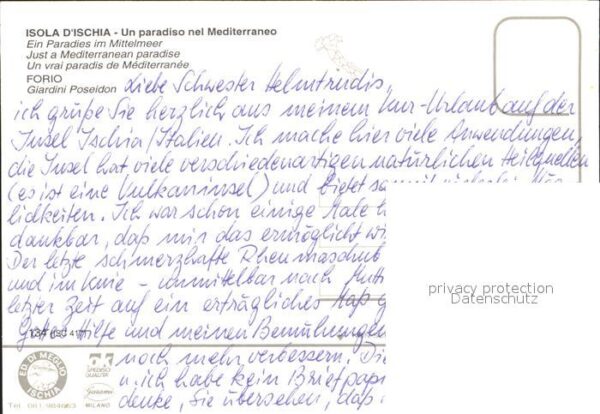 ISOLA D'ISCHIA - Un paradiso nel Mediterraneo
Ein Paradies im Mittelmeer
Just a Mediterranean paradise
Un vrai paradis de Méditerranée
FORIO
Giardini Poseidon
Liebe Schwester Helmtrudis,
ich grüße Sie herzlich aus meinem Kur-Urlaub auf der
Insel Ischia/Italien. Ich mache hier viele Anwendungen,
die Insel hat viele verschiedenartigen natürlichen Heilquellen
(es ist eine Vulkaninsel) und bietet somit vielerlei Mög
lichkeiten. Ich war schon einige Male h
dankbar, daß mir das ermöglicht wi
Der letzte schmerzhafte Rheumaschub
und im Knie - unmittelbar nach Mutt
letzter Zeit auf ein erträgliches Maß g
Gottes Hilfe und meinen Bemühungen
noch mehr verbessern. Die
u. ich habe kein Briefpapi
denke, Sie übersehen, daß
privacy protection
Datenschutz
ED. DI MEGLIO
ISCHIA
MILANO